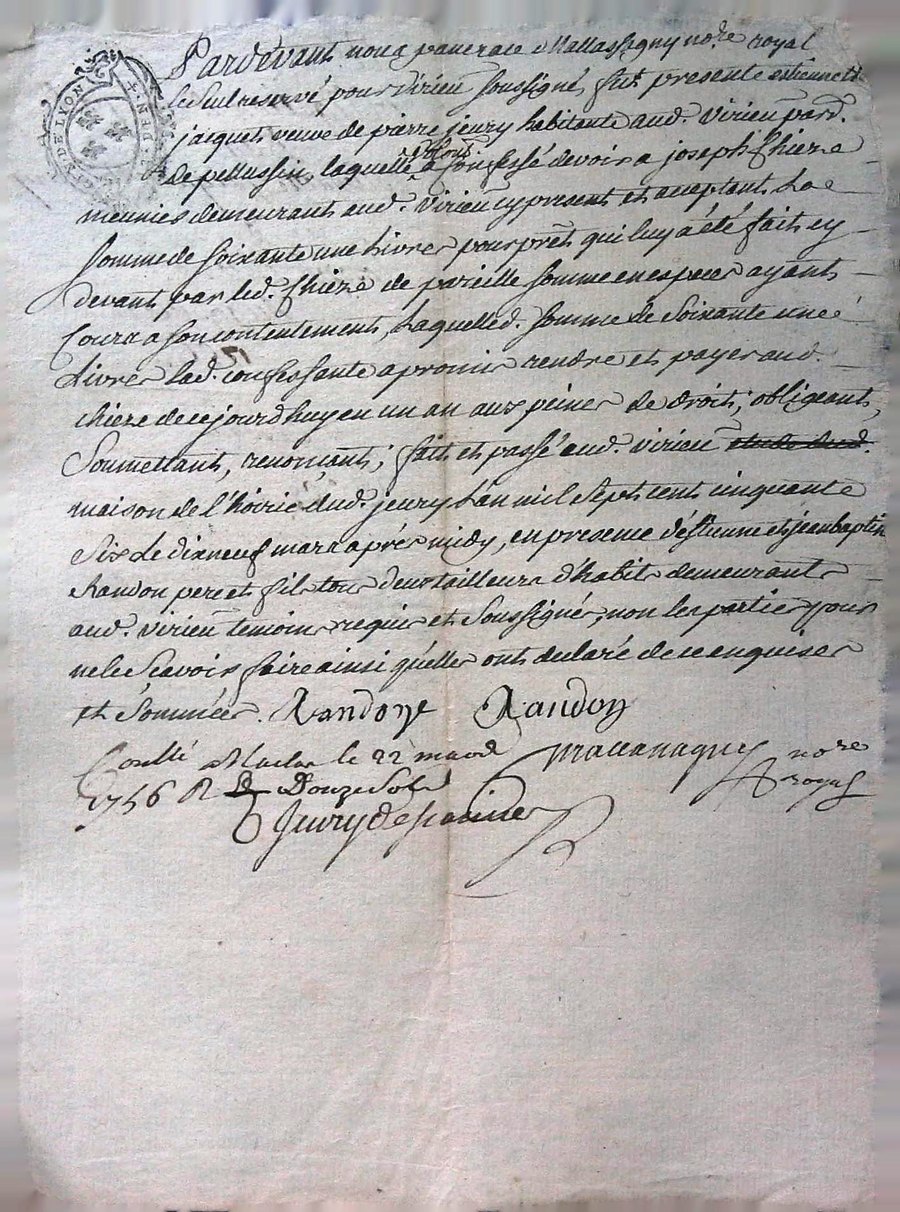 GN. DE LYON
Pardevant nous pancrace Mallassagny no.re royal
le seul reservé pour Virieu soussigné, fut presente estiennette
jacquet veuve de pierre jeury habitante aud. Virieu par.d
de pellussin, laquelle de son gré a confessé devoir a joseph chieze
meunier demeurant aud. Virieu cy present et aceptant La
somme de soixante une Livres pour prêt qui luy a été fait cy
devant par led. chieze de pareille somme en especes ayant
Cours a son contentement, Laquelle d. somme de soixante une
Livres lad. confessante a promis rendre et payer aud.
chieze de ce jourdhuy en un an aux peines de droit; obligeant,
Soumettant, renonçant; fait et passé aud. Virieu
maison de l'hoirie dud. jeury L'an mil sept cent cinquante
Six Le dixneuf mars après midy, en presence d'estienne et jean baptiste
Randon pere et fils tous deux tailleurs d'habits demeurant
aud. Virieu temoins requis et soussignés, non les parties pour
ne le sçavoir faire ainsi qu'elles ont declaré de ce enquises
et Sommées. Randon Randon
Conllé a Maclas le 22 mars no.re
1756 R Douze Sols royal